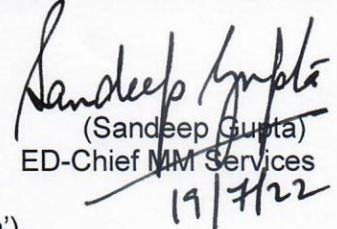 Sandeep Gupta
(Sandeep Gupta)
ED-Chief MM Services
19/7/22
')